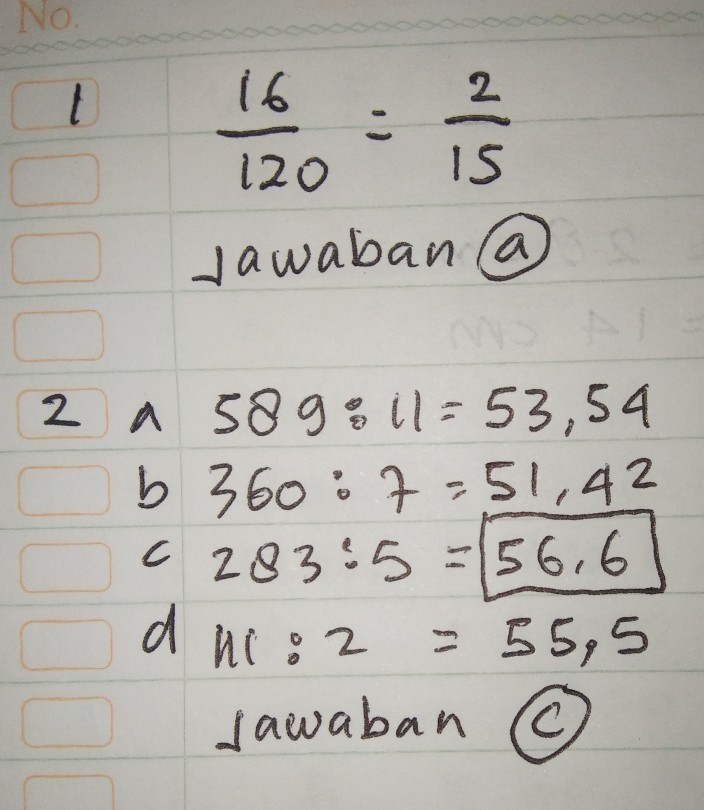 No.
1 16/120 = 2/15
Jawaban a
2 a 589 : 11 = 53,54
b 360 : 7 = 51,42
c 283 : 5 = 56,6
d 111 : 2 = 55,5
Jawaban c